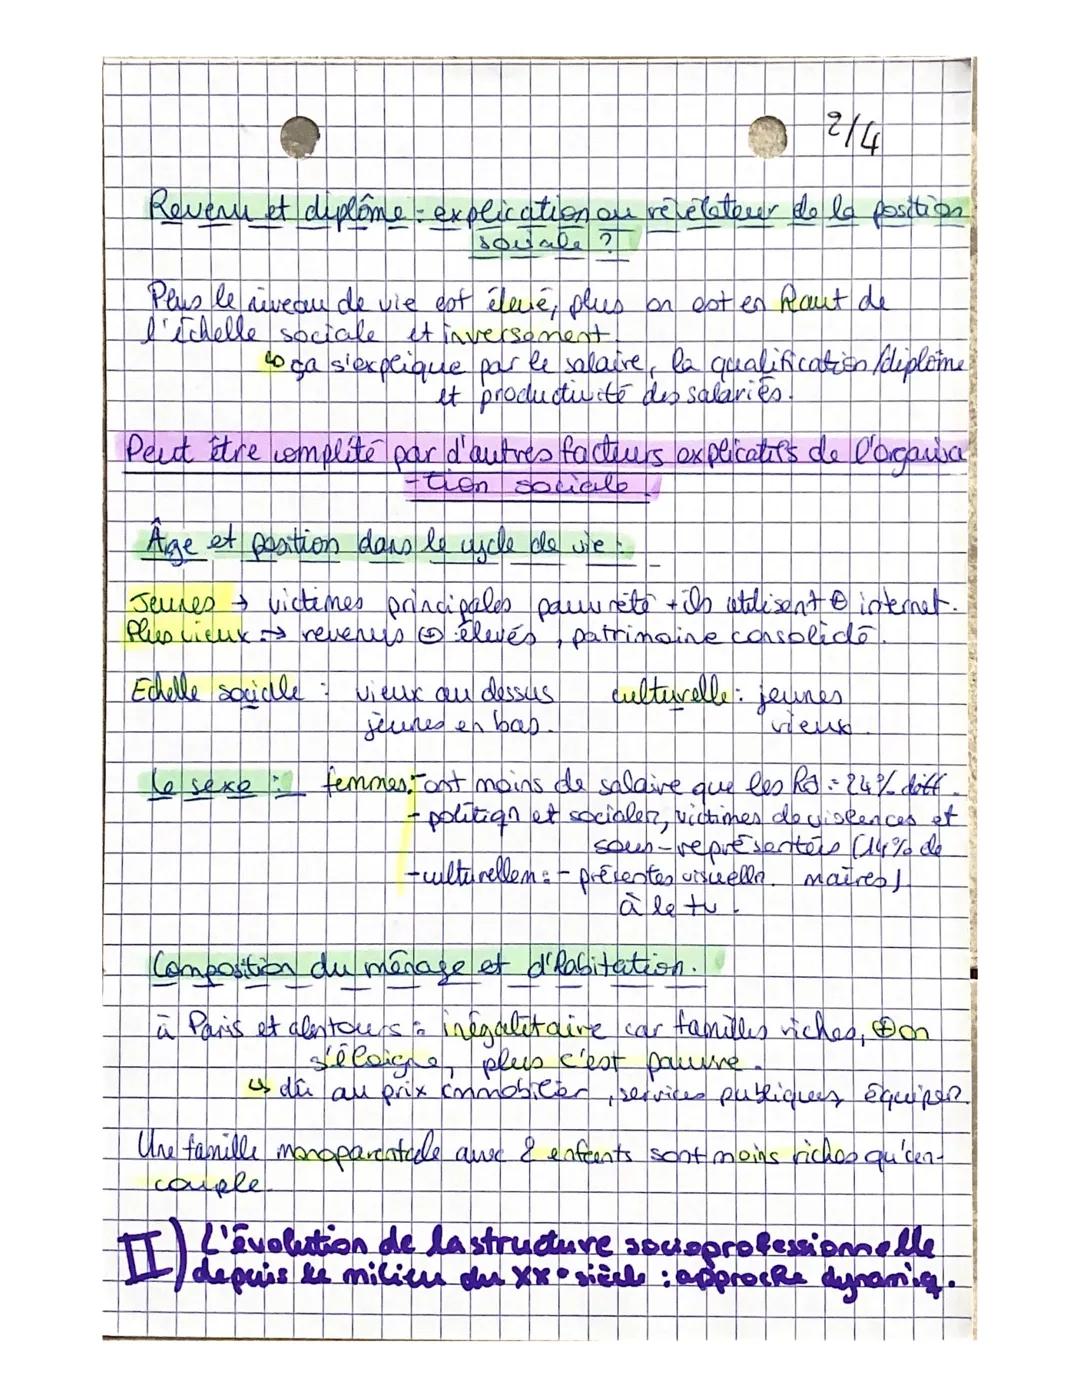 2/4
Revenu et diplôme : explication ou révélateur de la position
sociale ?
Plus le niveau de vie est élevé, plus on est en haut de
l'échelle sociale et inversement.
↳ ça s'explique par le salaire, la qualification/diplôme
et productivité des salariés.
Peut être complété par d'autres facteurs explicatifs de l'organisa
-tion sociale.
Âge et position dans le cycle de vie :
Jeunes → victimes principales pauvreté + ils utilisent ⊕ internet.
Plus vieux → revenus ⊕ élevés, patrimoine consolidé.
Echelle sociale : vieux au dessus culturelle : jeunes
jeunes en bas. vieux.
Le sexe : femmes : - ont moins de salaire que les : 24% diff.
- politiqn et socialem, victimes de violences et
sous-représentées (14% de
- culturellem : - présentes visuellm. maires)
à le tv.
Composition du ménage et d'habitation.
à Paris et alentours : inégalitaire car familles riches, ⊕ on
s'éloigne, plus c'est pauvre.
↳ dû au prix immobilier, services publiques, équipem.
Une famille monoparentale avec 2 enfants sont moins riches qu'en
couple.
II) L'évolution de la structure socioprofessionnelle
depuis le milieu du XXe siècle : approche dynamiq.